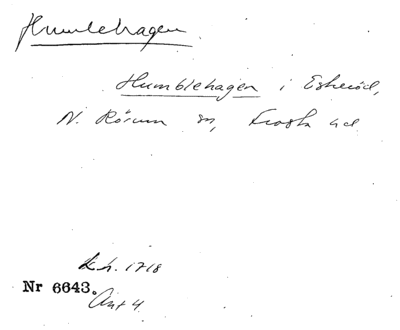 Humlehagen
Humblehagen i Eskeröd,
N. Rörum sn, Frosta hd
k.h. 1718
Nr 6643.
Ant 4.